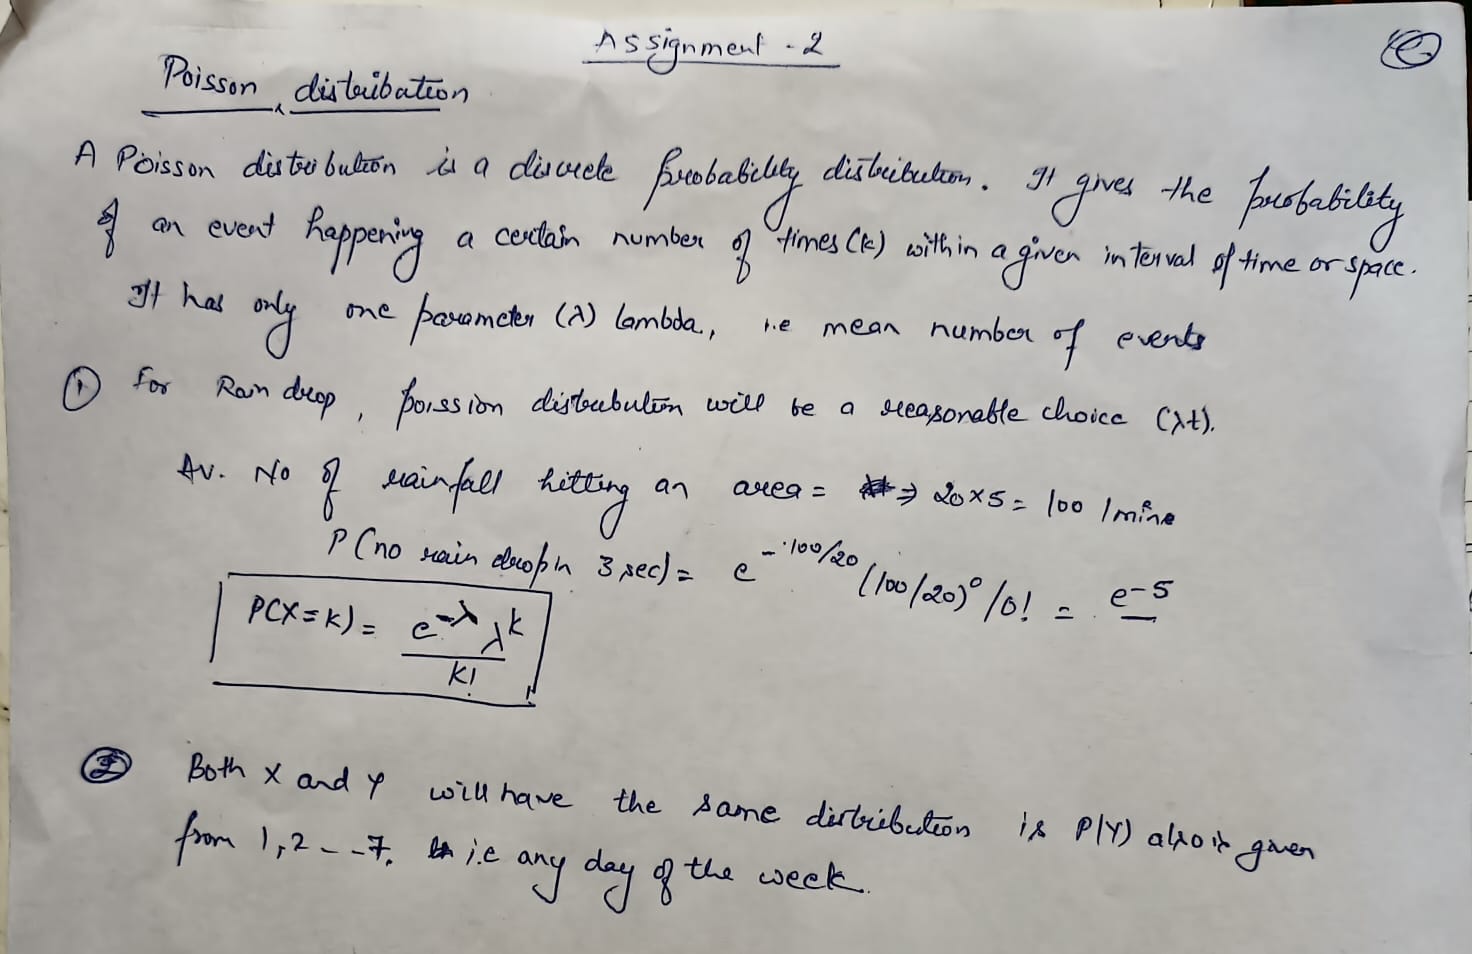 Assignment - 2
Poisson distribution
A Poisson distribution is a discrete probability distribution. It gives the probability
of an event happening a certain number of times (k) within a given interval of time or space.
It has only one parameter (λ) lambda, i.e mean number of events
① for Rain drop, poission distribution will be a reasonable choice (λt).
Av. No of rainfall hitting an area = ⇒ 20×5 = 100 /mine
P(no rain drop in 3 sec) = e^-100/20 (100/20)^0 /0! = e-5
P(X=k) = e^-λ λ^k / k!
② Both X and Y will have the same distribution is P(Y) also is given
from 1, 2 - - 7. i.e any day of the week.